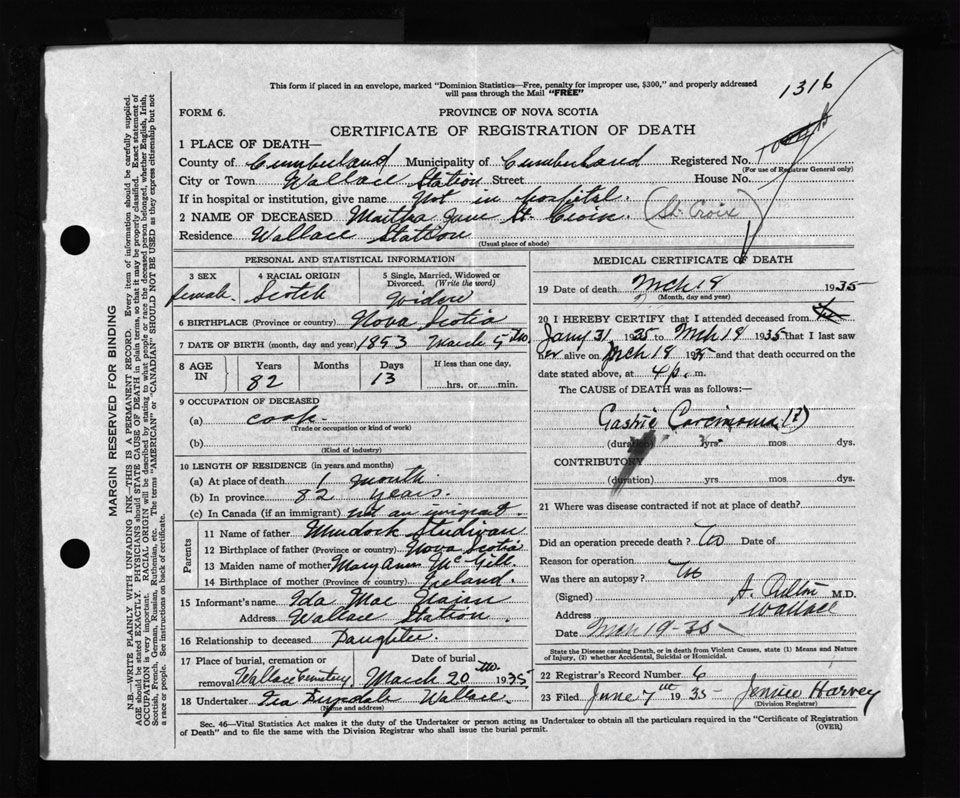 This form if placed in an envelope, marked "Dominion Statistics—Free, penalty for improper use, $300," and properly addressed
will pass through the Mail "FREE"
1316
FORM 6.
PROVINCE OF NOVA SCOTIA
CERTIFICATE OF REGISTRATION OF DEATH
1 PLACE OF DEATH—
County of Cumberland Municipality of Cumberland Registered No.
(For use of Registrar General only)
City or Town Wallace Station Street House No.
If in hospital or institution, give name Not in hospital.
2 NAME OF DECEASED Martha Jane St. Croix. (St. Croix)
Residence Wallace Station
(Usual place of abode)
PERSONAL AND STATISTICAL INFORMATION
3 SEX female. 4 RACIAL ORIGIN Scotch 5 Single, Married, Widowed or Divorced. (Write the word) Widow
6 BIRTHPLACE (Province or country) Nova Scotia
7 DATE OF BIRTH (month, day and year) 1853 March 5th.
8 AGE IN Years 82 Months Days 13 If less than one day, hrs. or min.
9 OCCUPATION OF DECEASED
(a) cook
(Trade or occupation or kind of work)
(b)
(Kind of industry)
10 LENGTH OF RESIDENCE (in years and months)
(a) At place of death 1 month
(b) In province 82 years.
(c) In Canada (if an immigrant) not an imigrant.
Parents
11 Name of father Murdock
12 Birthplace of father (Province or country) Nova Scotia
13 Maiden name of mother Mary Ann McGill
14 Birthplace of mother (Province or country) Ireland.
15 Informant's name Ida Mae
Address Wallace Station.
16 Relationship to deceased Daughter.
17 Place of burial, cremation or removal Wallace Cemetery Date of burial March 20 th 1935.
18 Undertaker Wallace.
(Name and address)
MEDICAL CERTIFICATE OF DEATH
19 Date of death Mch 18 1935
(Month, day and year)
20 I HEREBY CERTIFY that I attended deceased from
Jany 31 1935 to Mch 18 1935 that I last saw
her alive on Mch 18 1935 and that death occurred on the
date stated above, at 4 p. m.
The CAUSE OF DEATH was as follows:—
Gastric Carcinoma (?)
(duration) yrs. mos. dys.
CONTRIBUTORY
(duration) yrs. mos. dys.
21 Where was disease contracted if not at place of death?
Did an operation precede death? No Date of
Reason for operation
Was there an autopsy? No
(Signed) M.D.
Address Wallace
Date Mch 19-35
State the Disease causing Death, or in death from Violent Causes, state (1) Means and Nature
of Injury, (2) whether Accidental, Suicidal or Homicidal.
22 Registrar's Record No. 6
23 Filed June 7th 1935 Jennie Harvey
(Division Registrar)
Sec. 46—Vital Statistics Act makes it the duty of the Undertaker or person acting as Undertaker to obtain all the particulars required in the "Certificate of Registration
of Death" and to file the same with the Division Registrar who shall issue the burial permit.
(OVER)
MARGIN RESERVED FOR BINDING
N.B.—WRITE PLAINLY WITH UNFADING INK—THIS IS A PERMANENT RECORD. Every item of information should be carefully supplied.
AGE should be stated EXACTLY. PHYSICIANS should STATE CAUSE OF DEATH in plain terms, so that it may be properly classified. Exact statement of
OCCUPATION is very important. RACIAL ORIGIN will be described by stating to what people or race the deceased person belonged, whether English, Irish,
Scottish, French, German, Russian, Ruthenian, etc. The terms "AMERICAN" or "CANADIAN" SHOULD NOT BE USED as they express citizenship but not
a race or people. See instructions on back of certificate.